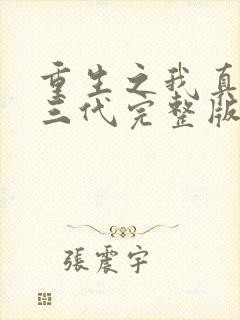 重生之我真
三代完整版
張震宇